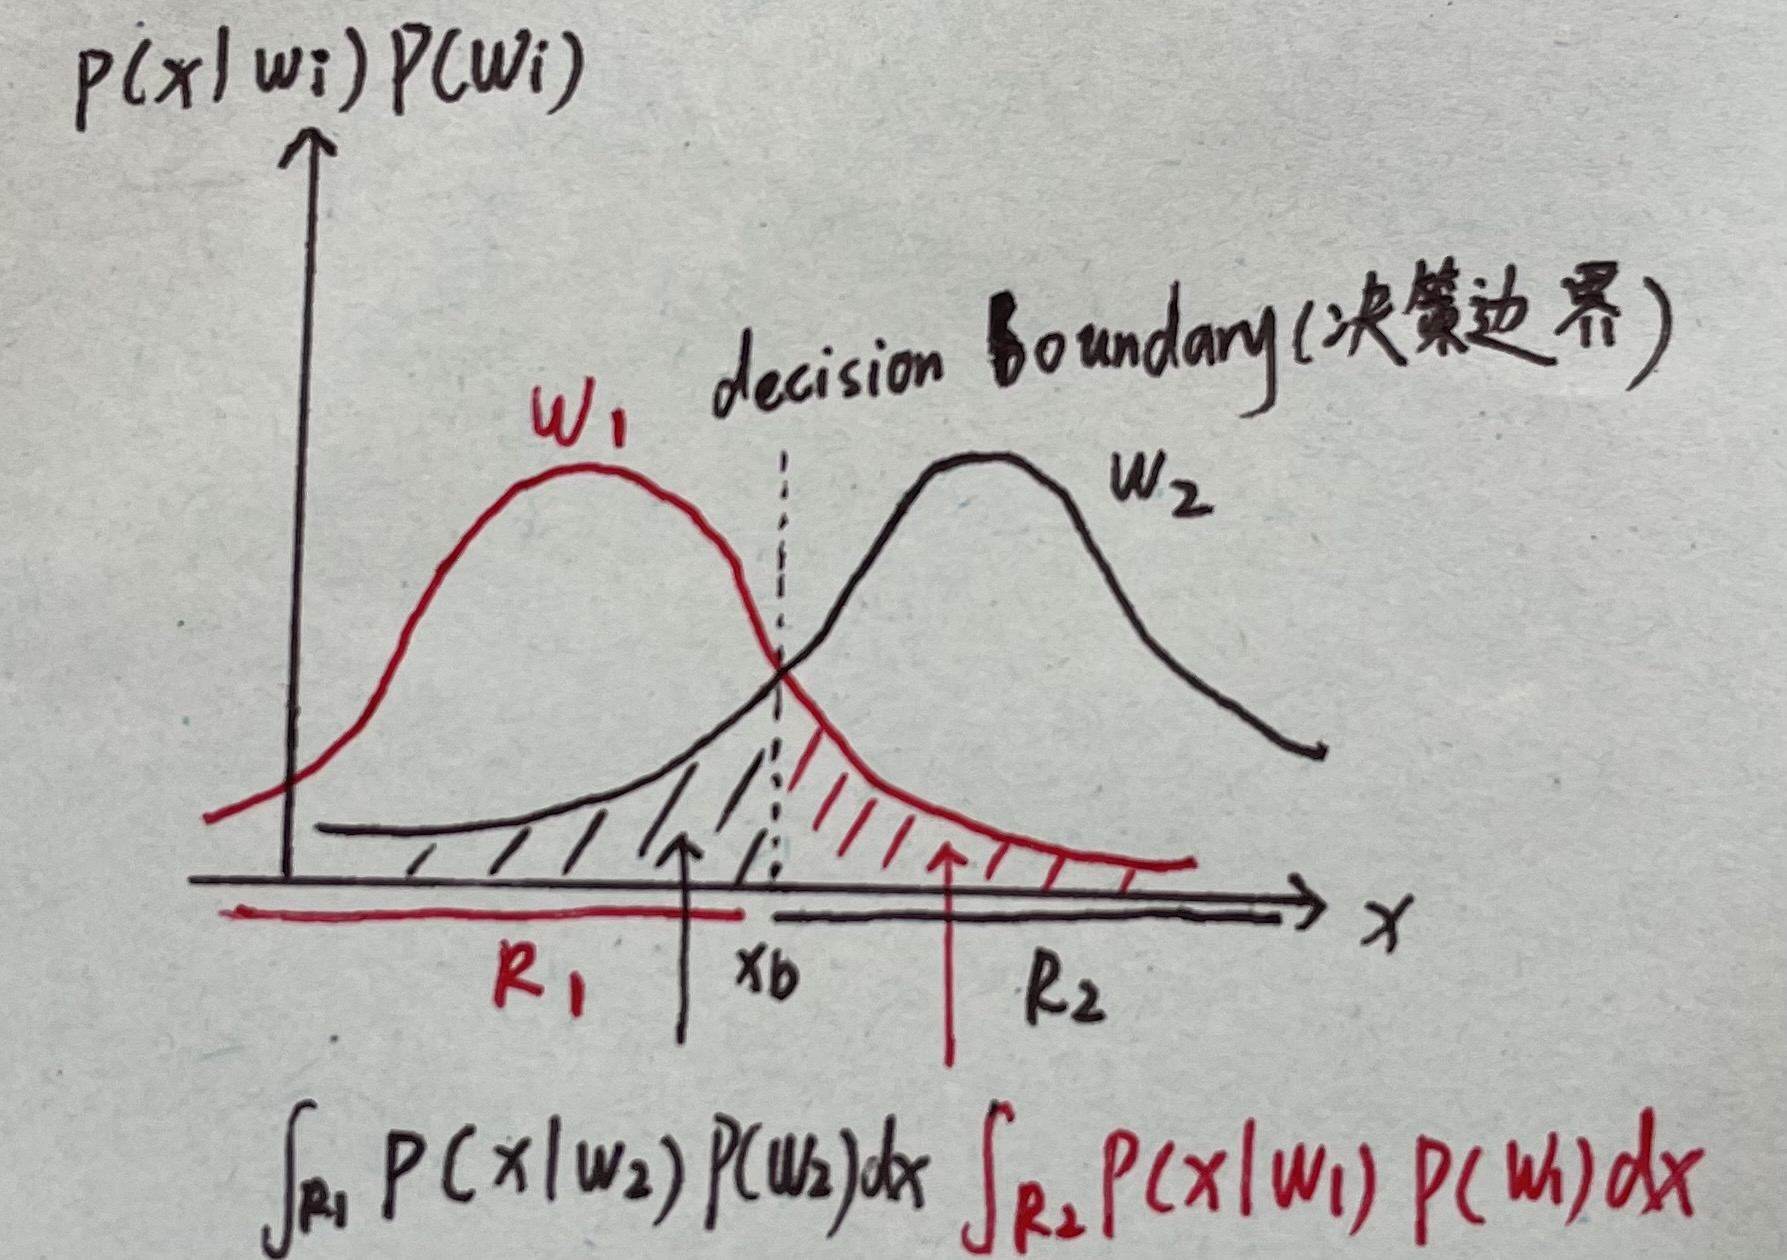 p(x|wi) P(wi)
decision boundary(决策边界)
W1
W2
x
R1
xb
R2
∫R1 P(x|W2) P(W2)dx ∫R2 P(x|W1) P(W1)dx